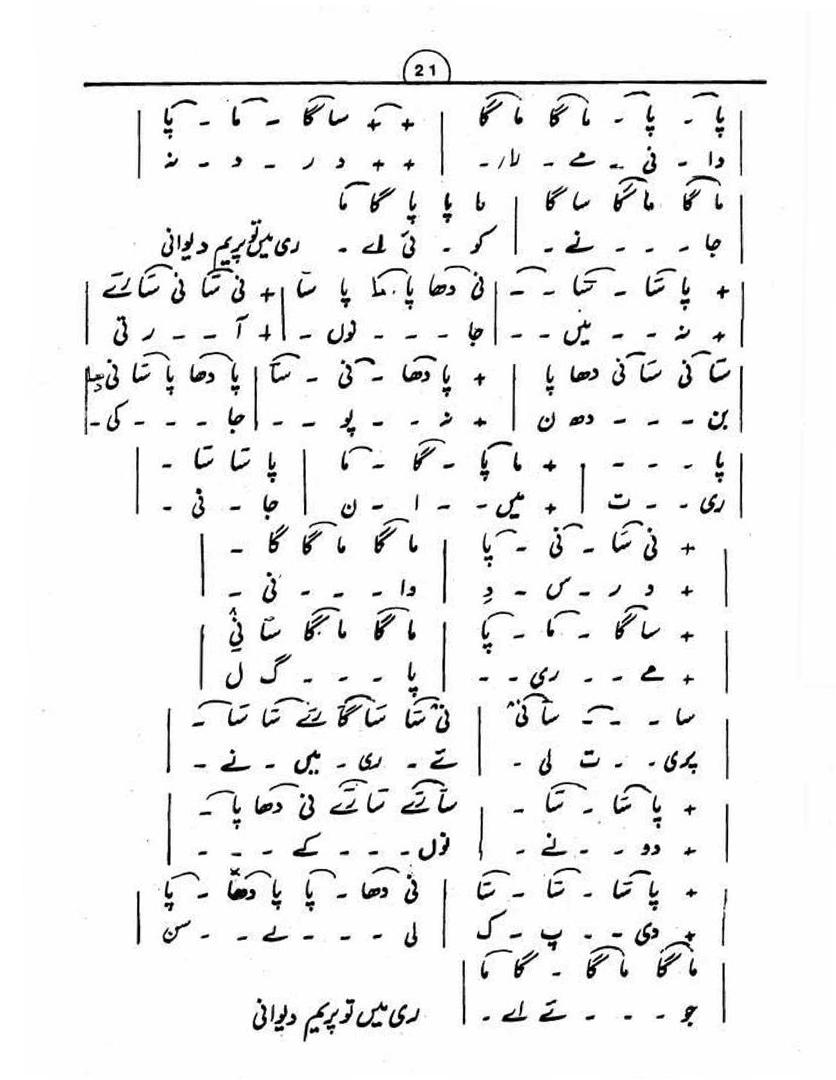 21
پا - پا - ما گا ما گا | + + سا گا - ما - پا
دا - نی - مے - لار - | + + د ر - د - نہ
ما گا ما گا سا گا | ما پا پا گا ما
جا - - - نے - | کو - ئی اے - ری میں تو پریم دیوانی
+ پا سَا - سَا - - | نی دھا پا ما پا سَا | + نی سَا نی سَا رے
+ نہ - - میں - - | جا - - - نوں - | + آ - - ر تی
سَا نی سَا نی دھا پا | + پا دھا - نی - سَا | پا دھا پا سَا نی دھا
بن - - - دھ ن | + نہ - - پو - - | جا - - - کی -
پا - - - | + ما پا - گا - ما | پا سَا سَا -
ری - - ت | + میں - - ا - ن | جا - نی -
+ نی سَا - نی - پا | ما گا ما گا گا -
+ د ر - س - دِ | دا - - - نی -
+ سا گا - ما - پا | ما گا ما گا سا نی
+ مے - - ری - - | پا - - - گ ل
سا - - - سا نی | نی سَا سَا گَا رے سَا سَا -
پری - - ت لی - | تے - ری - میں - نے -
+ پا سَا - سَا - | سَا رے سَا رے نی دھا پا -
+ دو - - نے - | نوں - - - کے - - -
+ پا سَا - سَا - سَا | نی دھا - پا پا دھا - پا
+ دی - - پ - ک | لی - - - لے - - سن
ما گا ما گا - گا ما
جو - - - تے اے - | ری میں تو پریم دیوانی